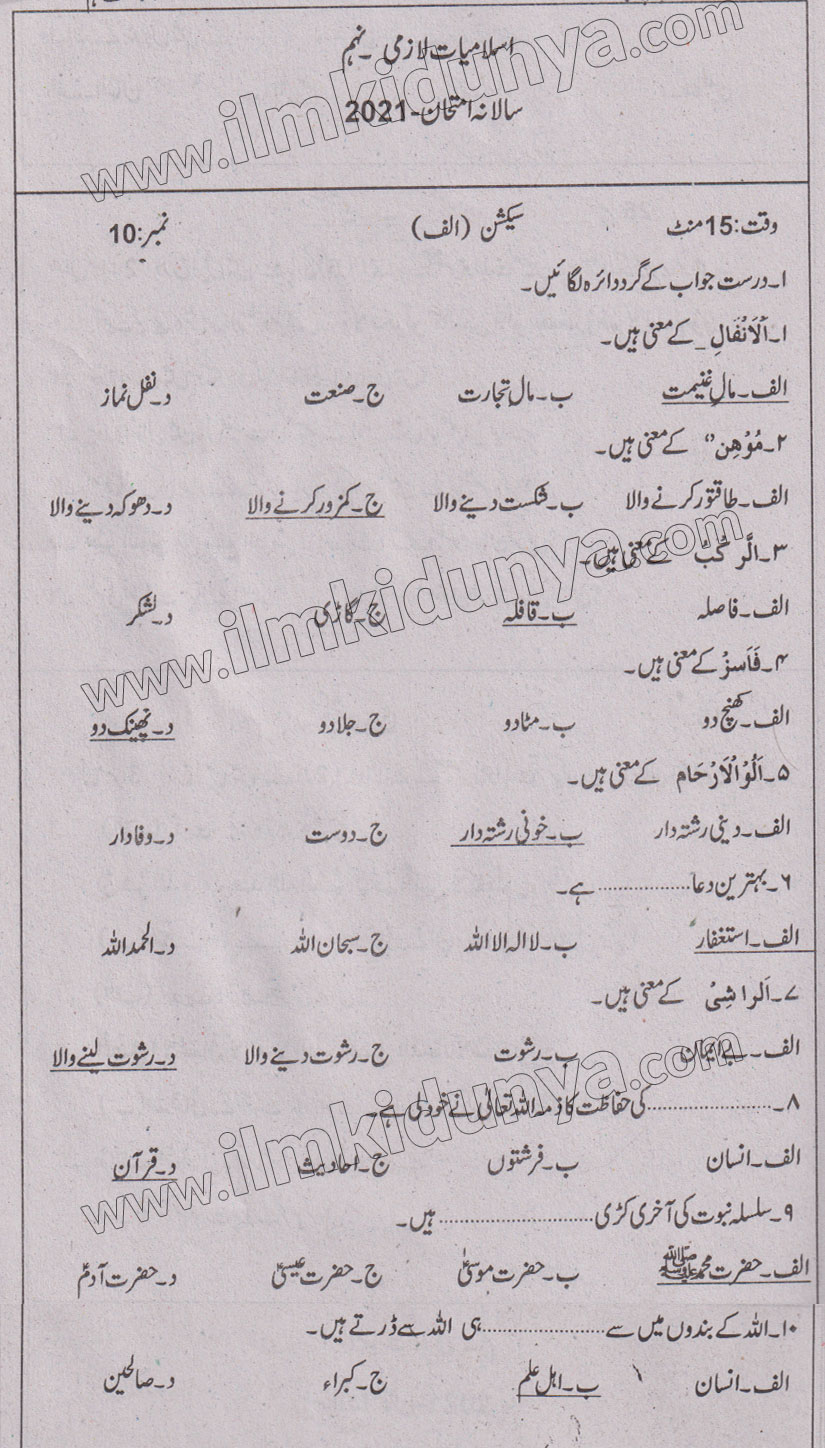 اسلامیات لازمی ۔ نہم
سالانہ امتحان-2021
وقت: 15 منٹ سیکشن (الف) نمبر: 10
۱۔ درست جواب کے گرد دائرہ لگائیں۔
۱۔ اَلْاَنْفَالِ _ کے معنی ہیں۔
الف۔ مالِ غنیمت ب۔ مالِ تجارت ج۔ صنعت د۔ نفل نماز
۲۔ مُوْهِن'' کے معنی ہیں۔
الف۔ طاقتور کرنے والا ب۔ شکست دینے والا ج۔ کمزور کرنے والا د۔ دھوکہ دینے والا
۳۔ الَّر کُبُ کے معنی ہیں۔
الف۔ فاصلہ ب۔ قافلہ ج۔ گاڑی د۔ لشکر
۴۔ فَاَسِرْ کے معنی ہیں۔
الف۔ کھنچ دو ب۔ مٹا دو ج۔ جلا دو د۔ پھینک دو
۵۔ اَلُو الْاَرْحَام کے معنی ہیں۔
الف۔ دینی رشتہ دار ب۔ خونی رشتہ دار ج۔ دوست د۔ وفادار
۶۔ بہترین دعا .................. ہے۔
الف۔ استغفار ب۔ لا الہ الا اللہ ج۔ سبحان اللہ د۔ الحمد اللہ
۷۔ اَلراشِیْ کے معنی ہیں۔
الف۔ بے ایمان ب۔ رشوت ج۔ رشوت دینے والا د۔ رشوت لینے والا
۸۔ ........................ کی حفاظت کا ذمہ اللہ تعالیٰ نے خود لی ہے۔
الف۔ انسان ب۔ فرشتوں ج۔ احادیث د۔ قرآن
۹۔ سلسلہ نبوت کی آخری کڑی .............................. ہیں۔
الف۔ حضرت محمد ﷺ ب۔ حضرت موسیٰؑ ج۔ حضرت عیسیٰؑ د۔ حضرت آدمؑ
۱۰۔ اللہ کے بندوں میں سے ........................ ہی اللہ سے ڈرتے ہیں۔
الف۔ انسان ب۔ اہل علم ج۔ کبراء د۔ صالحین
www.ilmkidunya.com
www.ilmkidunya.com
www.ilmkidunya.com